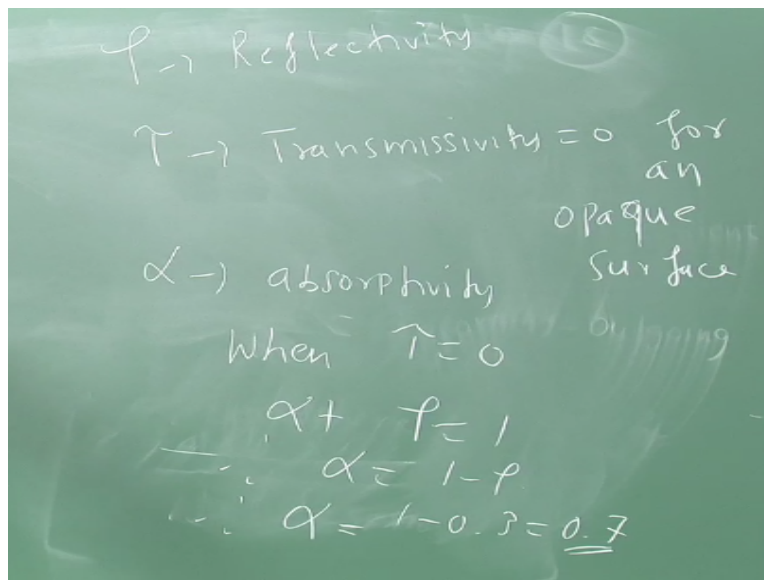 ρ → Reflectivity
τ → Transmissivity = 0 for
an
opaque
surface
α → absorptivity
When τ = 0
α + ρ = 1
∴ α = 1 - ρ
∴ α = 1 - 0.3 = 0.7